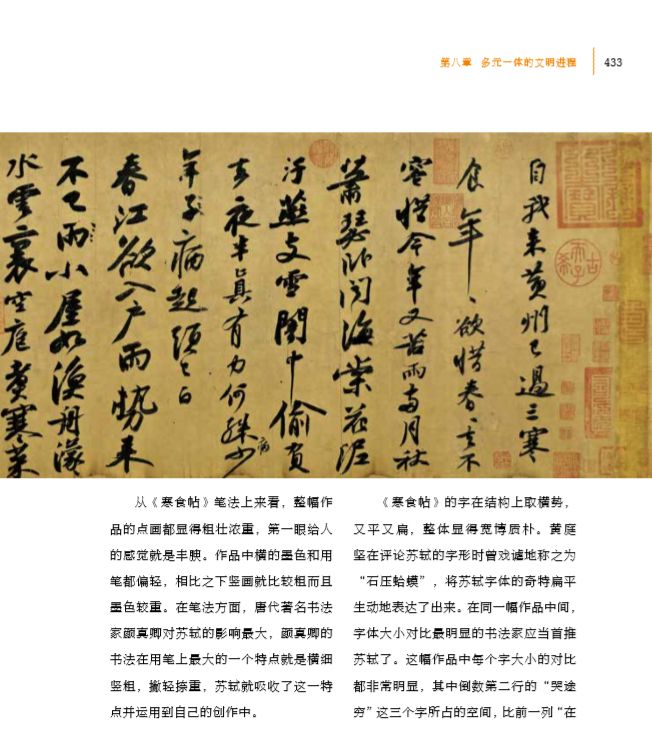 第八章 多元一体的文明进程 433
自我来黄州已過三寒
食年〻欲惜春〻去不
容惜今年又苦雨兩月秋
蕭瑟卧聞海棠花泥
汙燕支雪闇中偷負
去夜半真有力何殊少病
年子病起須已白
春江欲入户雨勢来
不已雨小屋如漁舟濛
水雲裏空庖煮寒菜
从《寒食帖》笔法上来看，整幅作
品的点画都显得粗壮浓重，第一眼给人
的感觉就是丰腴。作品中横的墨色和用
笔都偏轻，相比之下竖画就比较粗而且
墨色较重。在笔法方面，唐代著名书法
家颜真卿对苏轼的影响最大，颜真卿的
书法在用笔上最大的一个特点就是横细
竖粗，撇轻捺重，苏轼就吸收了这一特
点并运用到自己的创作中。
《寒食帖》的字在结构上取横势，
又平又扁，整体显得宽博质朴。黄庭
坚在评论苏轼的字形时曾戏谑地称之为
“石压蛤蟆”，将苏轼字体的奇特扁平
生动地表达了出来。在同一幅作品中间，
字体大小对比最明显的书法家应当首推
苏轼了。这幅作品中每个字大小的对比
都非常明显，其中倒数第二行的“哭途
穷”这三个字所占的空间，比前一列“在